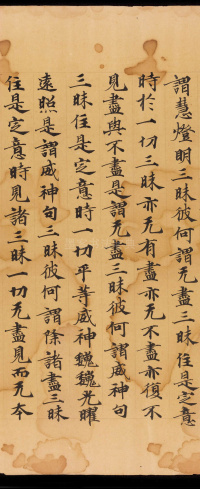 謂慧燈明三昧彼何謂无盡三昧住是定意
時於一切三昧亦无有盡亦无不盡亦復不
見盡與不盡是謂无盡三昧彼何謂威神句
三昧住是定意時一切平等威神巍巍光曜
遠照是謂威神句三昧彼何謂除諸盡三昧
住是定意時見諸三昧一切无盡見而无本